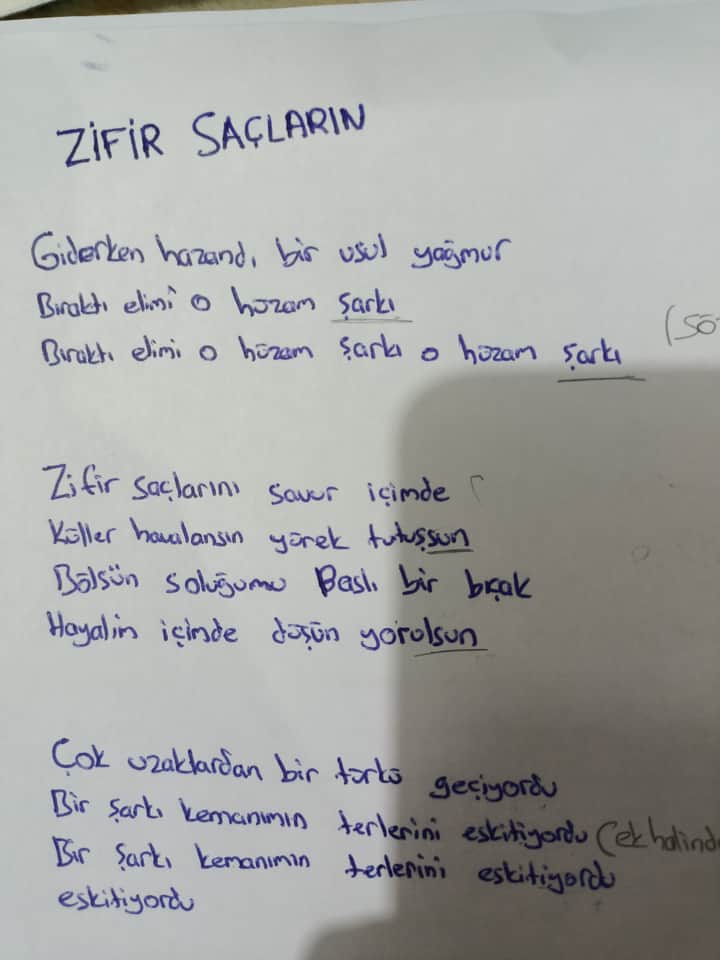 ZİFİR SAÇLARIN
Giderken hazandı bir usul yağmur
Bıraktı elimi o hüzam şarkı
(SÖ
Bıraktı elimi o hüzam şarkı o hüzam şarkı
Zifir saçlarını savur içimde
Küller havalansın yürek tutuşsun
Bölsün soluğumu Paslı bir bıçak
Hayalin içimde düşün yorulsun
Çok uzaklardan bir türkü geçiyordu
Bir şarkı kemanımın terlerini eskitiyordu (ek halind
Bir şarkı kemanımın terlerini eskitiyordu
eskitiyordu